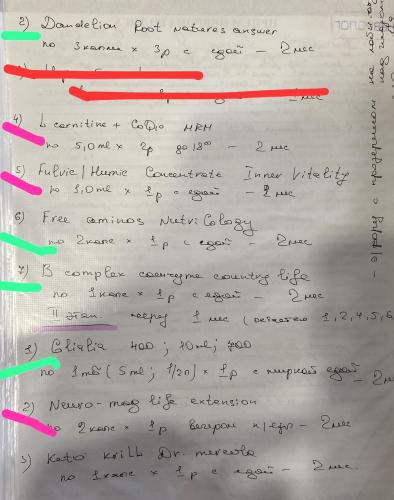 2) Dandelion Root natures answer
по 3 капли × 3р с едой – 2 мес
4) L carnitine + CoQ10 MRM
по 5,0 ml × 2р до 18⁰⁰ – 2 мес
5) Fulvic / Humic Concentrate Inner Vitality
по 1,0 ml × 1р с едой – 2 мес
6) Free aminos NutriCology
по 2 капс × 1р с едой – 2 мес
7) B complex coenzyme country life
по 1 капс × 1р с едой – 2 мес
II этап. через 1 мес ( 1, 2, 4, 5, 6,
1) Glialia 400 ; 10 ml ; 700
по 1 таб ( 5 ml ; 1/2п) × 1р с жирной едой – 2 м
2) Neuro-mag life extension
по 2 капс × 1р вечером – 2 мес
3) Keto krill Dr. mercola
по 1 капс × 1р с едой – 2 мес.